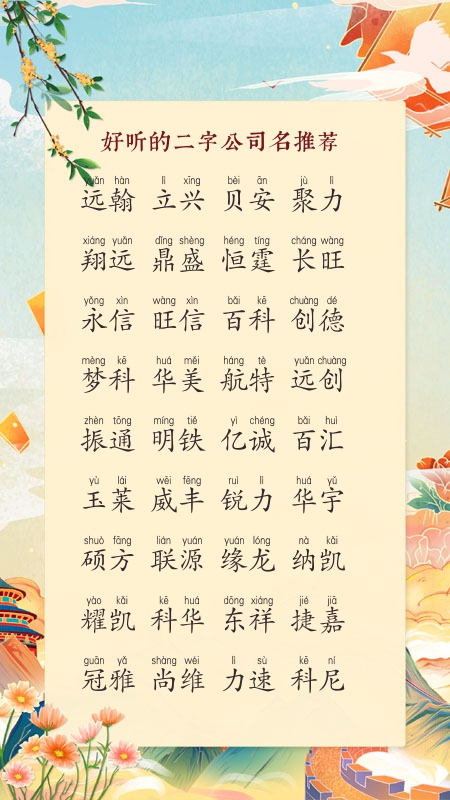 好听的二字公司名推荐
yuǎn hàn lì xīng bèi ān jù lì
远翰 立兴 贝安 聚力
xiáng yuǎn dǐng shèng héng tíng cháng wàng
翔远 鼎盛 恒霆 长旺
yǒng xìn wàng xìn bǎi kē chuàng dé
永信 旺信 百科 创德
mèng kē huá měi háng tè yuǎn chuàng
梦科 华美 航特 远创
zhèn tōng míng tiě yì chéng bǎi huì
振通 明铁 亿诚 百汇
yù lái wēi fēng ruì lì huá yǔ
玉莱 威丰 锐力 华宇
shuò fāng lián yuán yuán lóng nà kǎi
硕方 联源 缘龙 纳凯
yào kǎi kē huá dōng xiáng jié jiā
耀凯 科华 东祥 捷嘉
guān yǎ shàng wéi lì sù kē ní
冠雅 尚维 力速 科尼